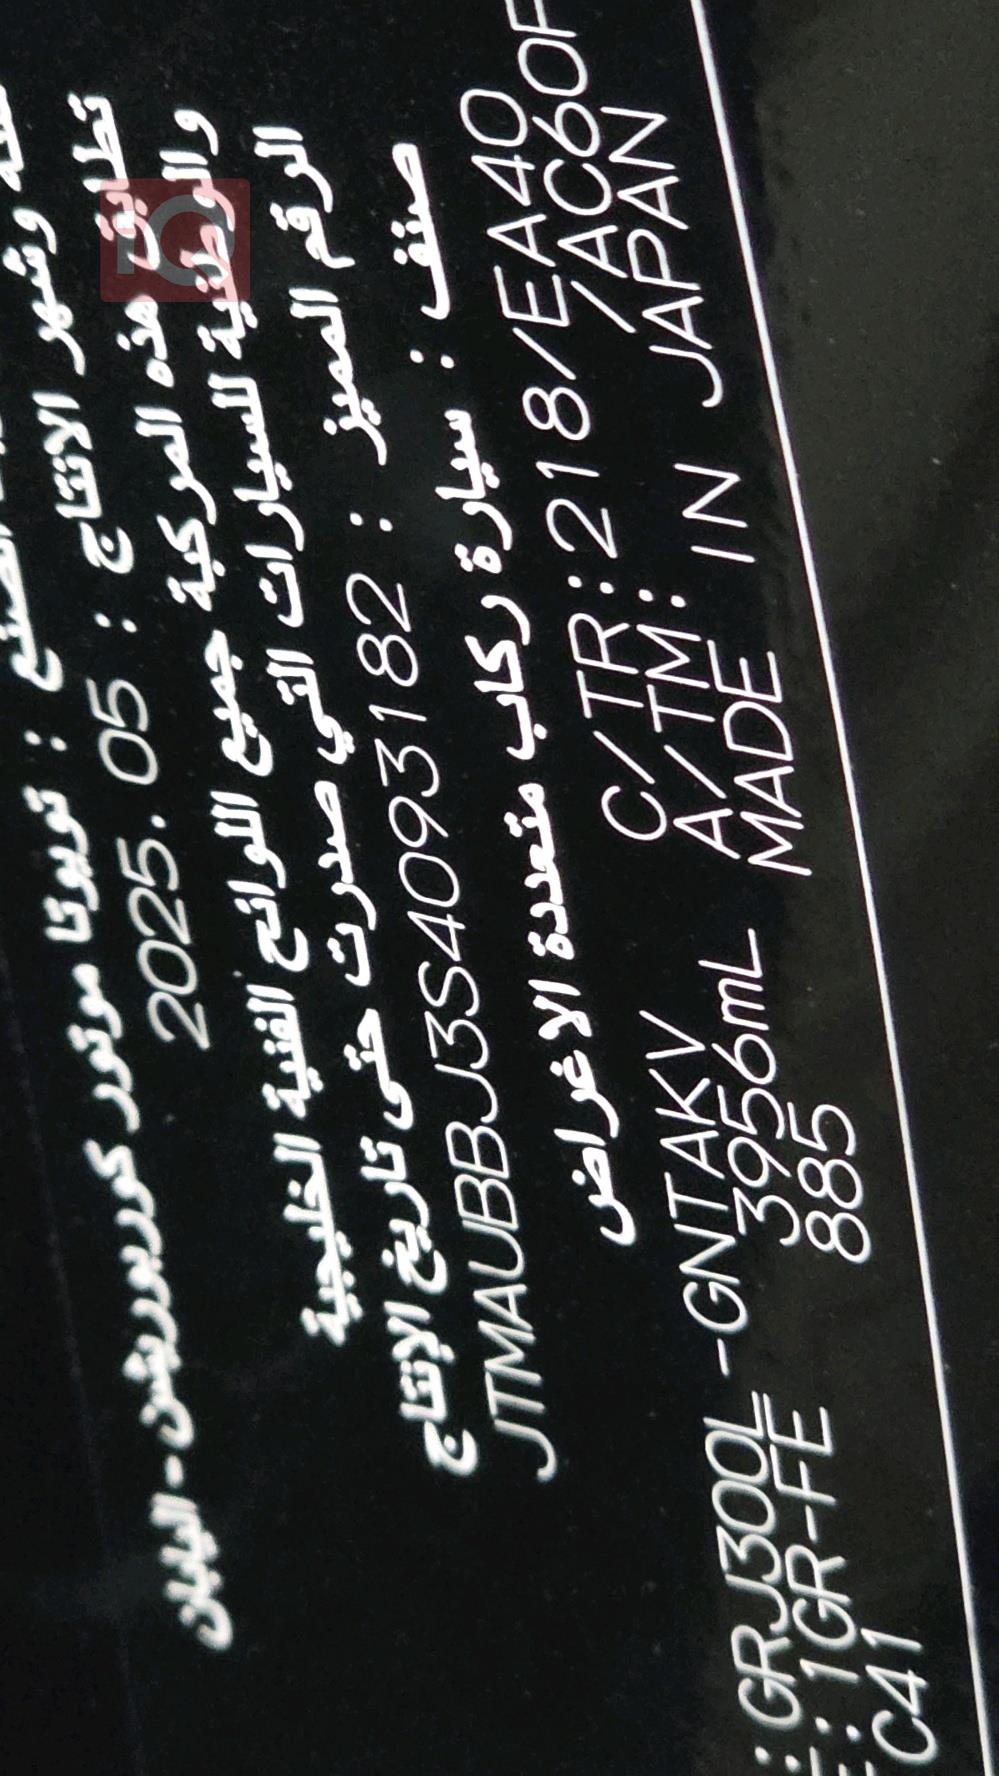 الصنع : تويوتا موتور كوربوريشن-اليابان
وشهر الانتاج : 2025. 05
تطابق هذه المركبة جميع اللوائح الفنية الخليجية
والوطنية للسيارات التي صدرت حتى تاريخ الإنتاج
الرقم المميز : JTMAUBBJ3S4093182
صنف : سيارة ركاب متعددة الاغراض
: GRJ300L -GNTAKV C/TR: 218/EA40
E: 1GR-FE 3956mL A/TM: /AC60F
C41 885 MADE IN JAPAN